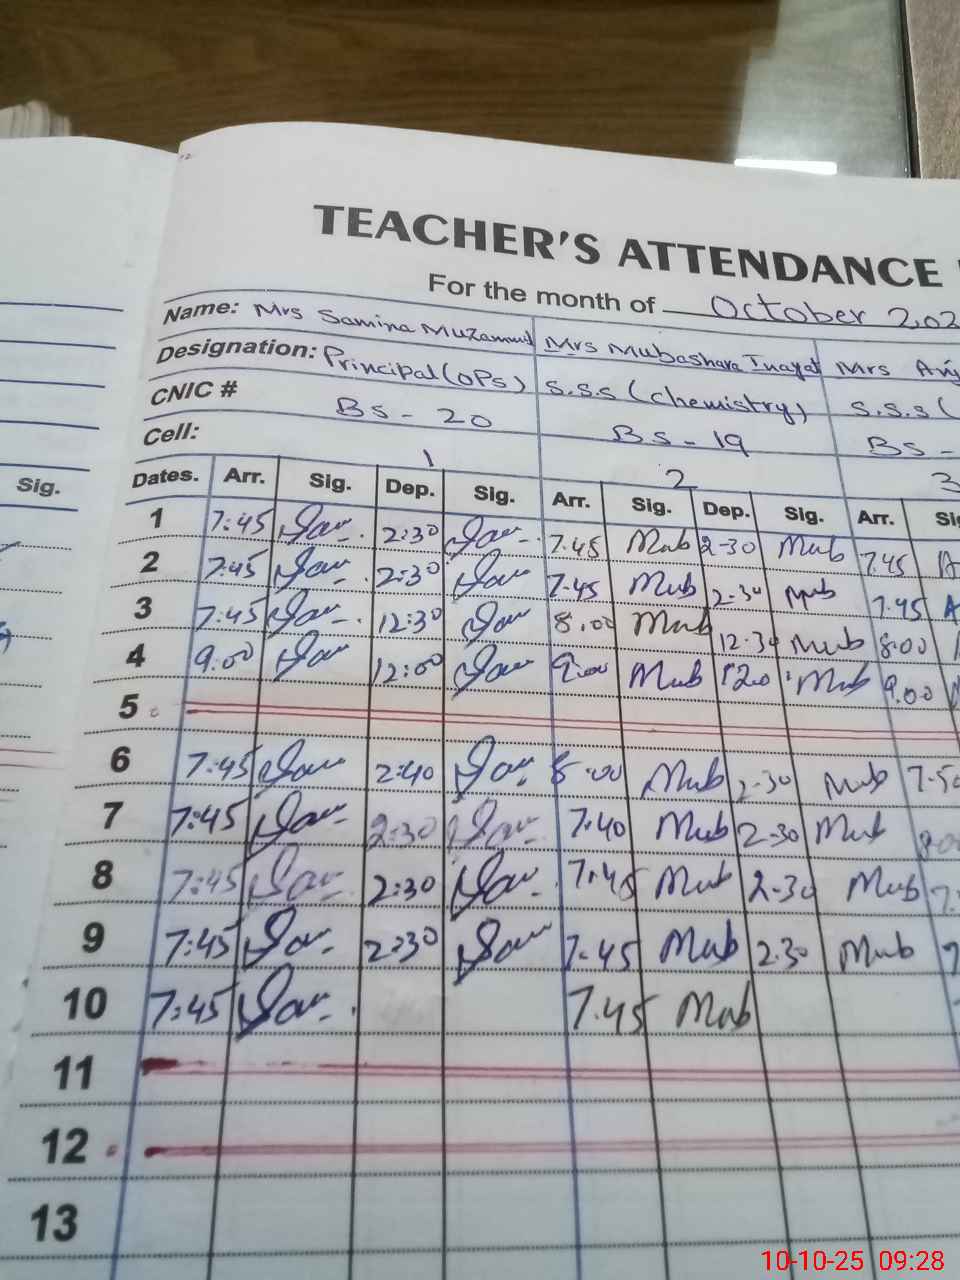 TEACHER'S ATTENDANCE
For the month of October 202
Name: Mrs Samina Muzammil Mrs Mubashara Inayat Mrs
Designation: Principal (OPS) S.S.S (Chemistry) S.S.S (
CNIC # BS - 20 BS - 19 BS -
Cell: 1 2 3
Sig. Dates. Arr. Sig. Dep. Sig. Arr. Sig. Dep. Sig. Arr.
1 7:45 Sam 2:30 Sam 7.45 Mub 2-30 Mub 7.45 A
2 7:45 Sam 2:30 Sam 7.45 Mub 2-30 Mub 7.45 A
3 7:45 Sam 12:30 Sam 8.00 Mub 12-30 Mub 8.00
4 9:00 Sam 12:00 Sam 9.00 Mub Mub 9.00
5
6 7:45 Sam 2:40 Sam 8.00 Mub 2-30 Mub 7.50
7 7:45 Sam 2:30 Sam 7.40 Mub 2-30 Mub 8.00
8 7:45 Sam 2:30 Sam 7.45 Mub 2-30 Mub 7.
9 7:45 Sam 2:30 Sam 7.45 Mub 2.30 Mub 7
10 7:45 Sam 7.45 Mub
11
12
13
10-10-25 09:28